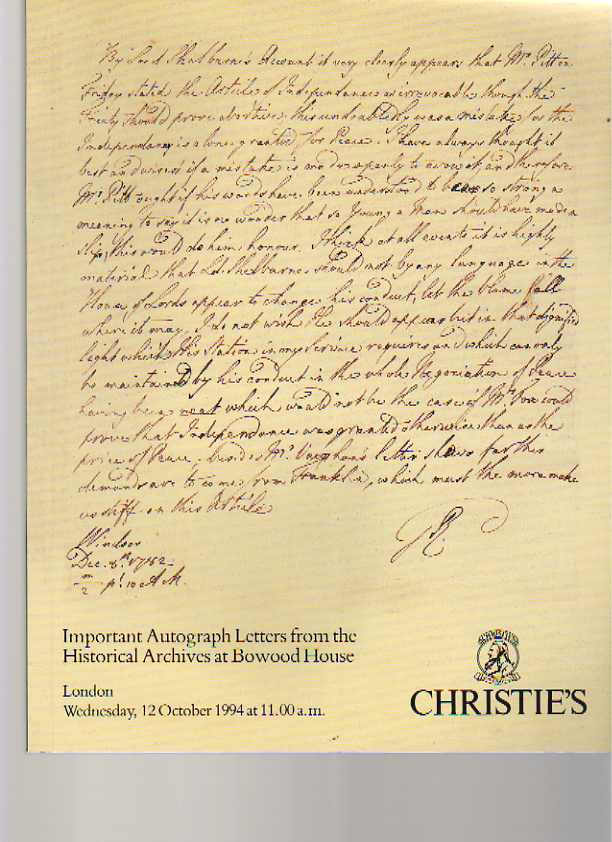 By Lord Shelburne's Account it very clearly appears that Mr. Pitt on
Friday stated the Article of Independance as irrevocable though the
Treaty should prove abortive; this undoubtedly was a mistake for the
Independancy is alone granted for Peace. I have always thought it
best and wisest if a mistake is made openly to avow it, and therefore
Mr. Pitt ought if his words have been understood to bear so strong a
meaning to say it is no wonder that so Young a Man should have made a
slip, this would do him honour. I think at all events it is highly
material that Ld. Shelburne should not by any language in the
House of Lords appear to change his conduct, let the blame fall
where it may, I do not wish He should appear but in that dignified
light which His Station in my Service requires and which can only
be maintained by his conduct in the whole Negociation of Peace
having been neat which would not be the case if Mr. Fox could
prove that Independance was granted otherwise than as the
price of Peace; besides Mr. Vaughan's letter shews further
demands are to come from Franklin, which must the more make
us stiff on this Article
GR.
Windsor
Dec. 8th. 1782.
m/2 pt. 10 A M.
Important Autograph Letters from the
Historical Archives at Bowood House
London
Wednesday, 12 October 1994 at 11.00 a.m.
CHRISTIE'S